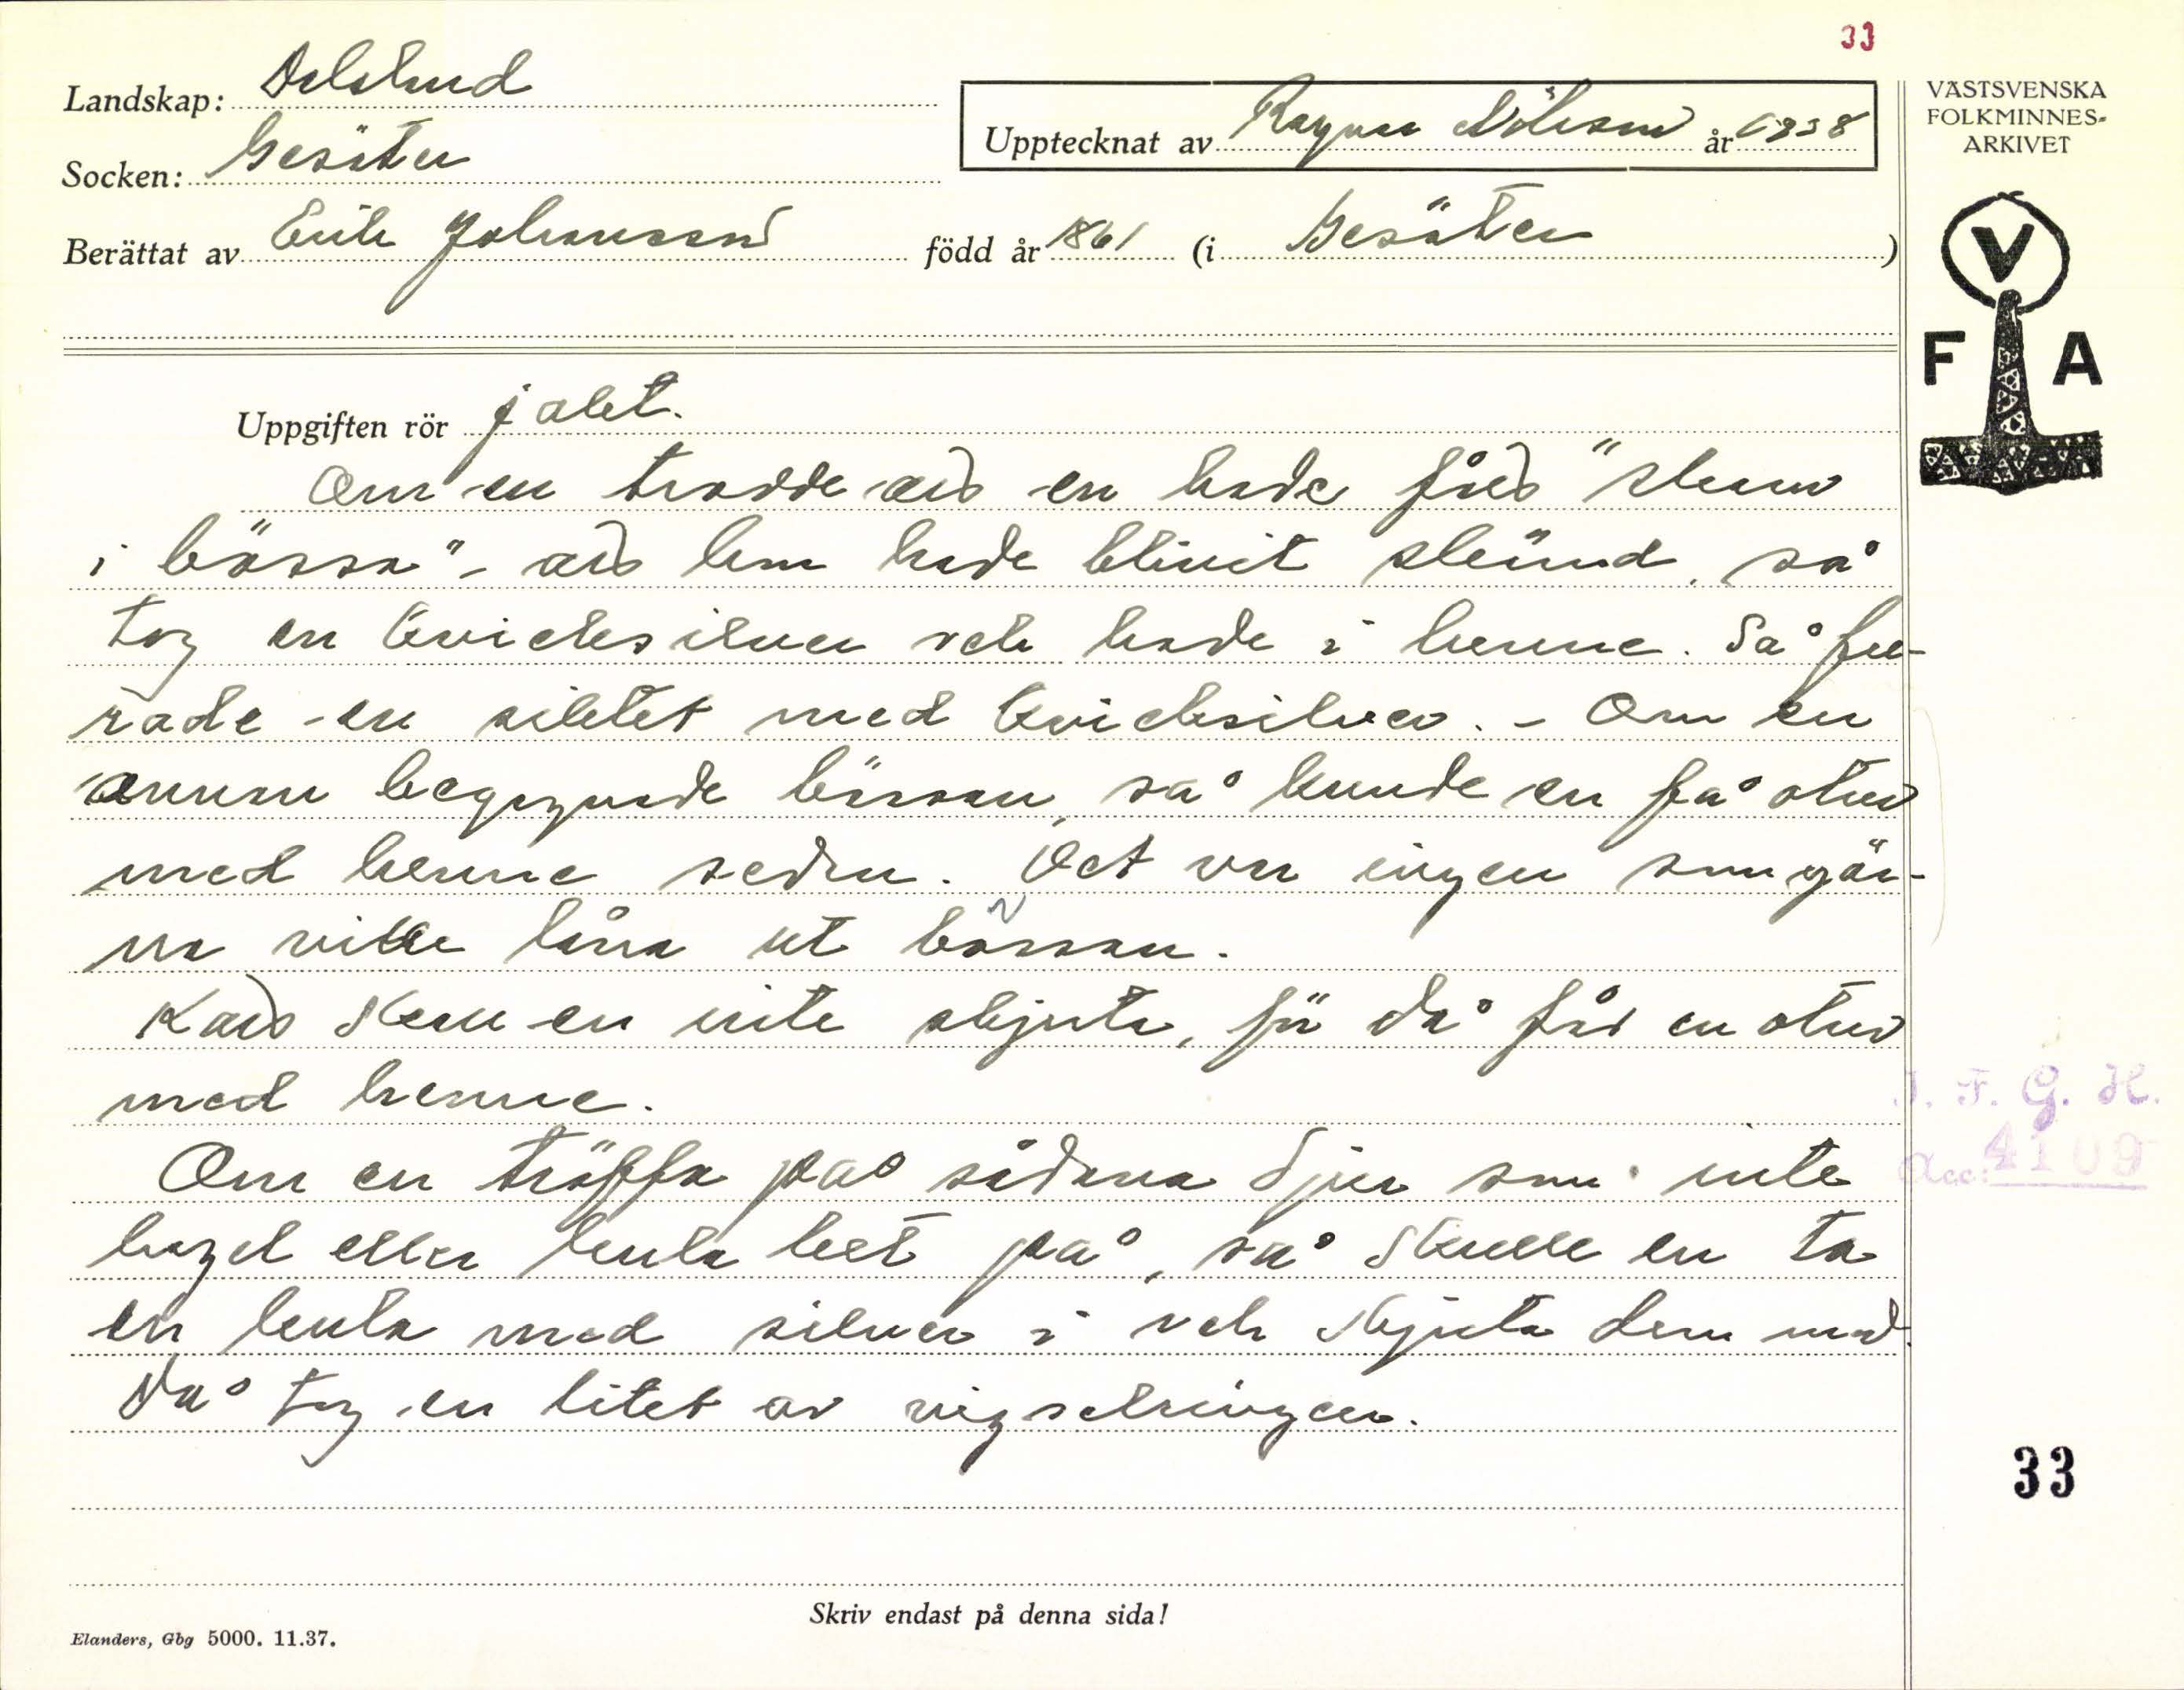 33
Landskap: Dalsland
Upptecknat av Ragnar Nilsson år 1938
VÄSTSVENSKA
FOLKMINNES-
ARKIVET
Socken: Gesäter
Berättat av Erik Johansson född år 1861 (i Gesäter)
V
F A
Uppgiften rör jakt.
Om en trodde att en hade fått "skam
i bössa" - att hon hade blivit skämd, så
tog en kvicksilver och hade i henne. Så fu-
rade en piletet med kvicksilver. - Om en
annan begagnade bössan, så kunde en få otur
med henne sedan. Det var ingen som gär-
na ville låna ut bössan.
Katt skall en inte skjuta, för då får en otur
med henne.
Om en träffa på sådana djur som inte
hagel eller kula bet på, så skulle en ta
en kula med silver i och skjuta dem med.
Då tog en litet av vigselringen.
I. F. G. H.
Acc: 4109
33
Skriv endast på denna sida!
Elanders, Gbg 5000. 11.37.